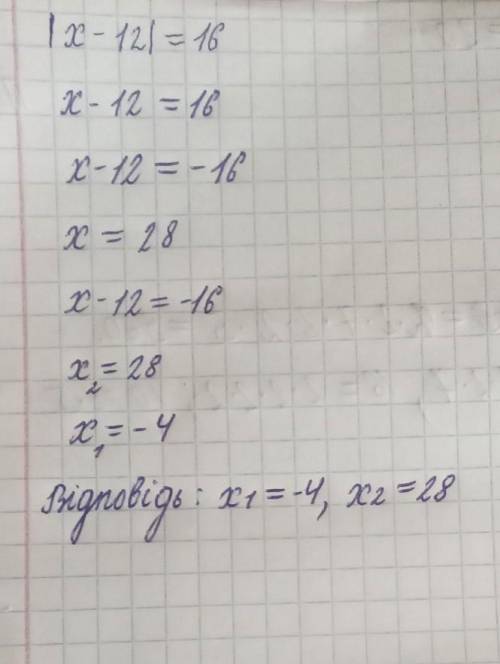 |x - 12| = 16
x - 12 = 16
x - 12 = - 16
x = 28
x - 12 = -16
x₂ = 28
x₁ = - 4
Відповідь: x₁ = -4, x₂ = 28